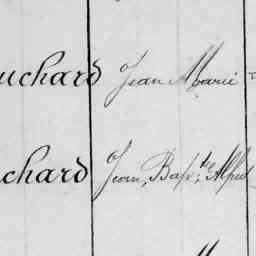 uchard Jean Marie
chard Jean, Bap.te Alfred